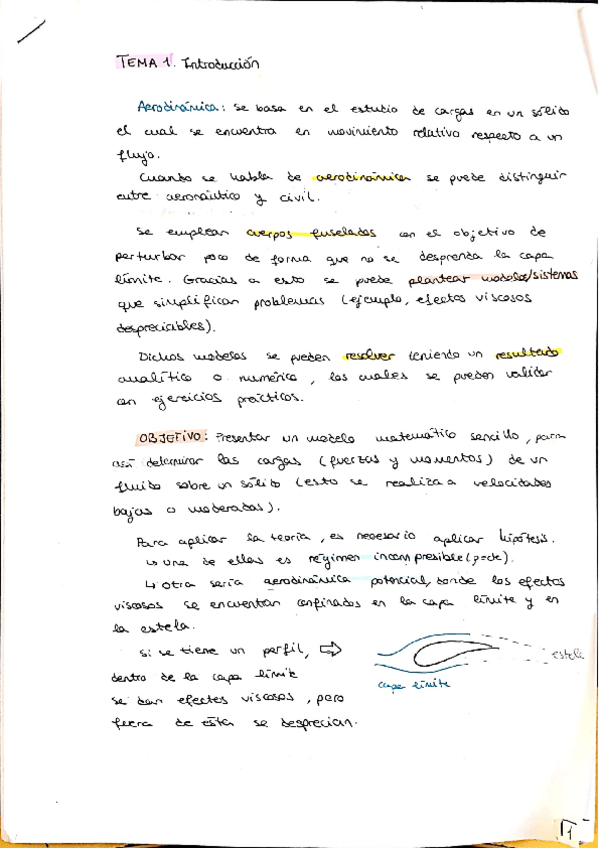 TEMA 1. Introducción
Aerodinámica: se basa en el estudio de cargas en un sólido
el cual se encuentra en movimiento relativo respecto a un
flujo.
Cuando se habla de aerodinámica se puede distinguir
entre aeronáutico y civil.
Se emplean cuerpos fuselados con el objetivo de
perturbar poco de forma que no se desprenda la capa
límite. Gracias a esto se puede plantear modelos/sistemas
que simplifican problemas (ejemplo, efectos viscosos
despreciables).
Dichos modelos se pueden resolver teniendo un resultado
analítico o numérico, los cuales se pueden validar
con ejercicios prácticos.
OBJETIVO: Presentar un modelo matemático sencillo, para
así determinar las cargas (fuerzas y momentos) de un
fluido sobre un sólido (esto se realiza a velocidades
bajas o moderadas).
Para aplicar la teoría, es necesario aplicar hipótesis.
↳ una de ellas es régimen incompresible (ρ=cte).
↳ otra sería aerodinámica potencial, donde los efectos
viscosos se encuentran confinados en la capa límite y en
la estela.
Si se tiene un perfil, ⇒
estela
dentro de la capa límite
capa límite
se dan efectos viscosos, pero
fuera de ésta se desprecian.
1